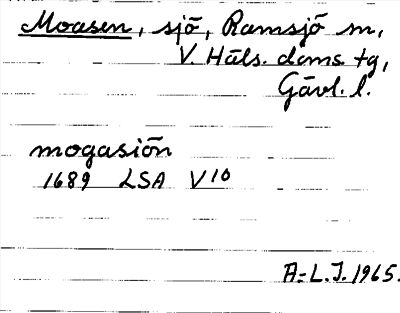 Moasen, sjö, Ramsjö sn,
V. Häls. doms. tg,
Gävl. l.
mogasiön
1689 LSA V10
A-L.J. 1965.